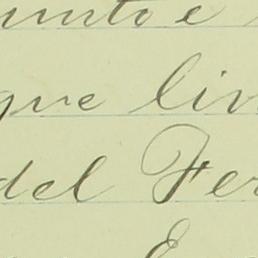 unto e
que lin
del Fer
E